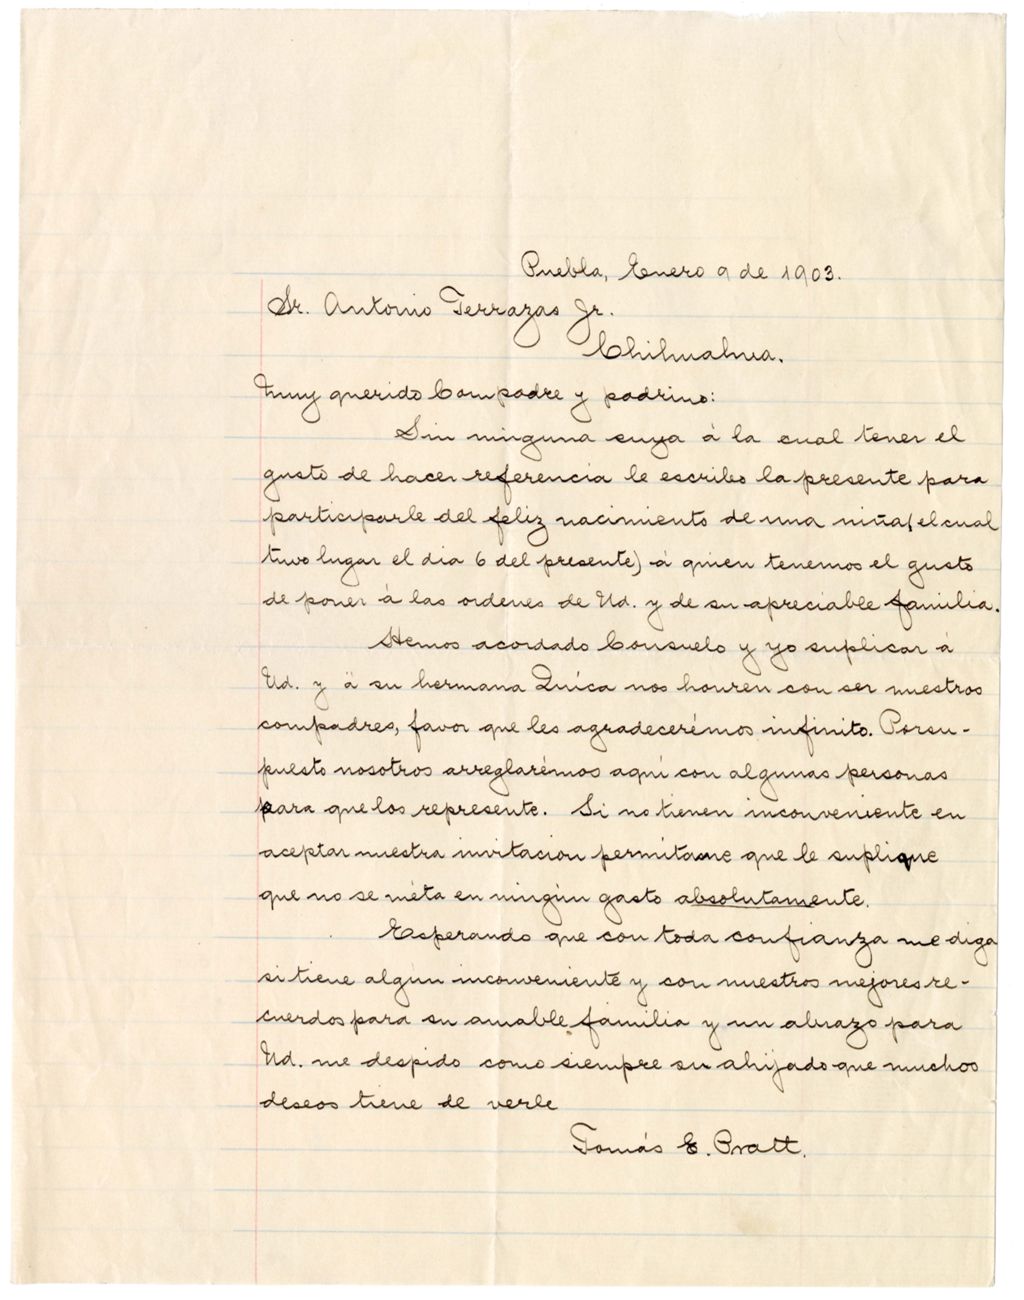 Puebla, Enero 9 de 1903.
Sr. Antonio Terrazas Jr.
Chihuahua.
Muy querido Compadre y padrino:
Sin ninguna suya á la cual tener el
gusto de hacer referencia le escribo la presente para
participarle del feliz nacimiento de una niña (el cual
tuvo lugar el dia 6 del presente) á quien tenemos el gusto
de poner á las ordenes de Ud. y de su apreciable familia.
Hemos acordado Consuelo y yo suplicar á
Ud. y á su hermana Quica nos honren con ser nuestros
compadres, favor que les agradecerémos infinito. Porsu-
puesto nosotros arreglarémos aquí con algunas personas
para que los represente. Si no tienen inconveniente en
aceptar nuestra invitacion permítame que le suplique
que no se méta en ningún gasto absolutamente.
Esperando que con toda confianza me diga
si tiene algún inconveniente y con nuestros mejores re-
cuerdos para su amable familia y un abrazo para
Ud. me despido como siempre su ahijado que muchos
deseos tiene de verle
Tomás E. Pratt.